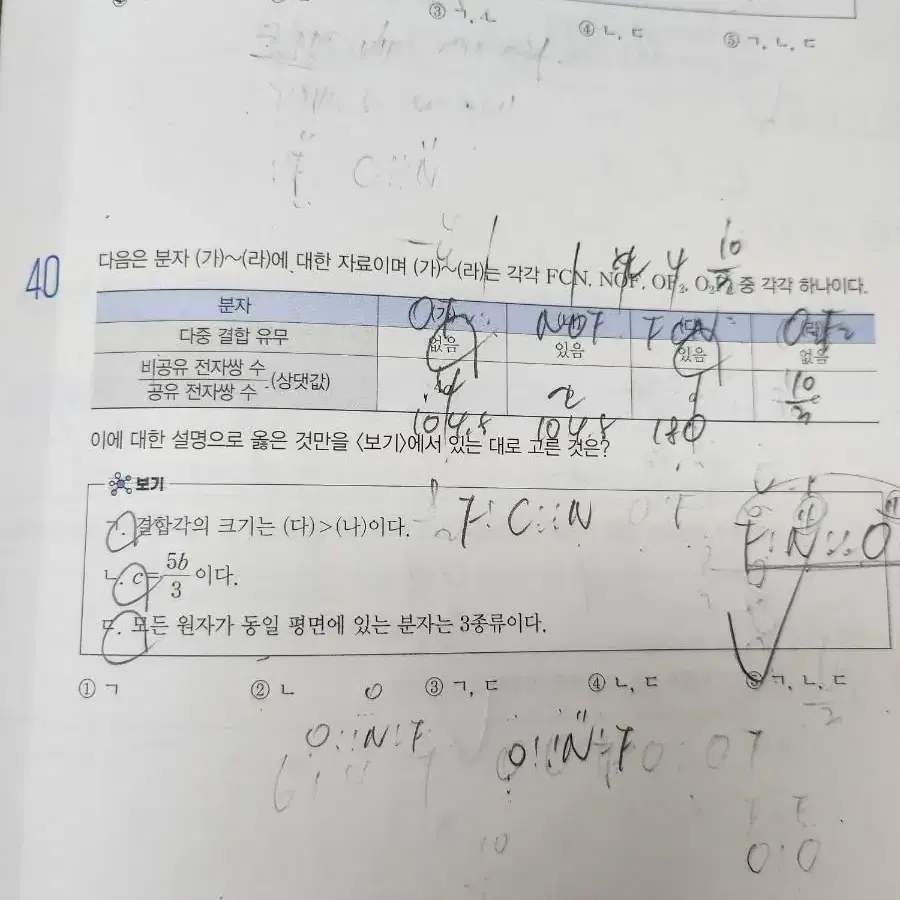 ③ ㄱ, ㄴ
④ ㄴ, ㄷ
⑤ ㄱ, ㄴ, ㄷ
F C::N
40
다음은 분자 (가)~(라)에 대한 자료이며 (가)~(라)는 각각 FCN, NOF, OF₂, O₂F₂ 중 각각 하나이다.
분자
다중 결합 유무 없음 있음 있음 없음
비공유 전자쌍 수 / 공유 전자쌍 수 (상댓값)
10/3
104.5 104.5 180
이에 대한 설명으로 옳은 것만을 <보기>에서 있는 대로 고른 것은?
보기
ㄱ. 결합각의 크기는 (다)>(나)이다.
F: C:::N
F:N::O
ㄴ. c=5b/3이다.
ㄷ. 모든 원자가 동일 평면에 있는 분자는 3종류이다.
① ㄱ ② ㄴ ③ ㄱ, ㄷ ④ ㄴ, ㄷ ⑤ ㄱ, ㄴ, ㄷ
O::N:F O::N:F
O:O